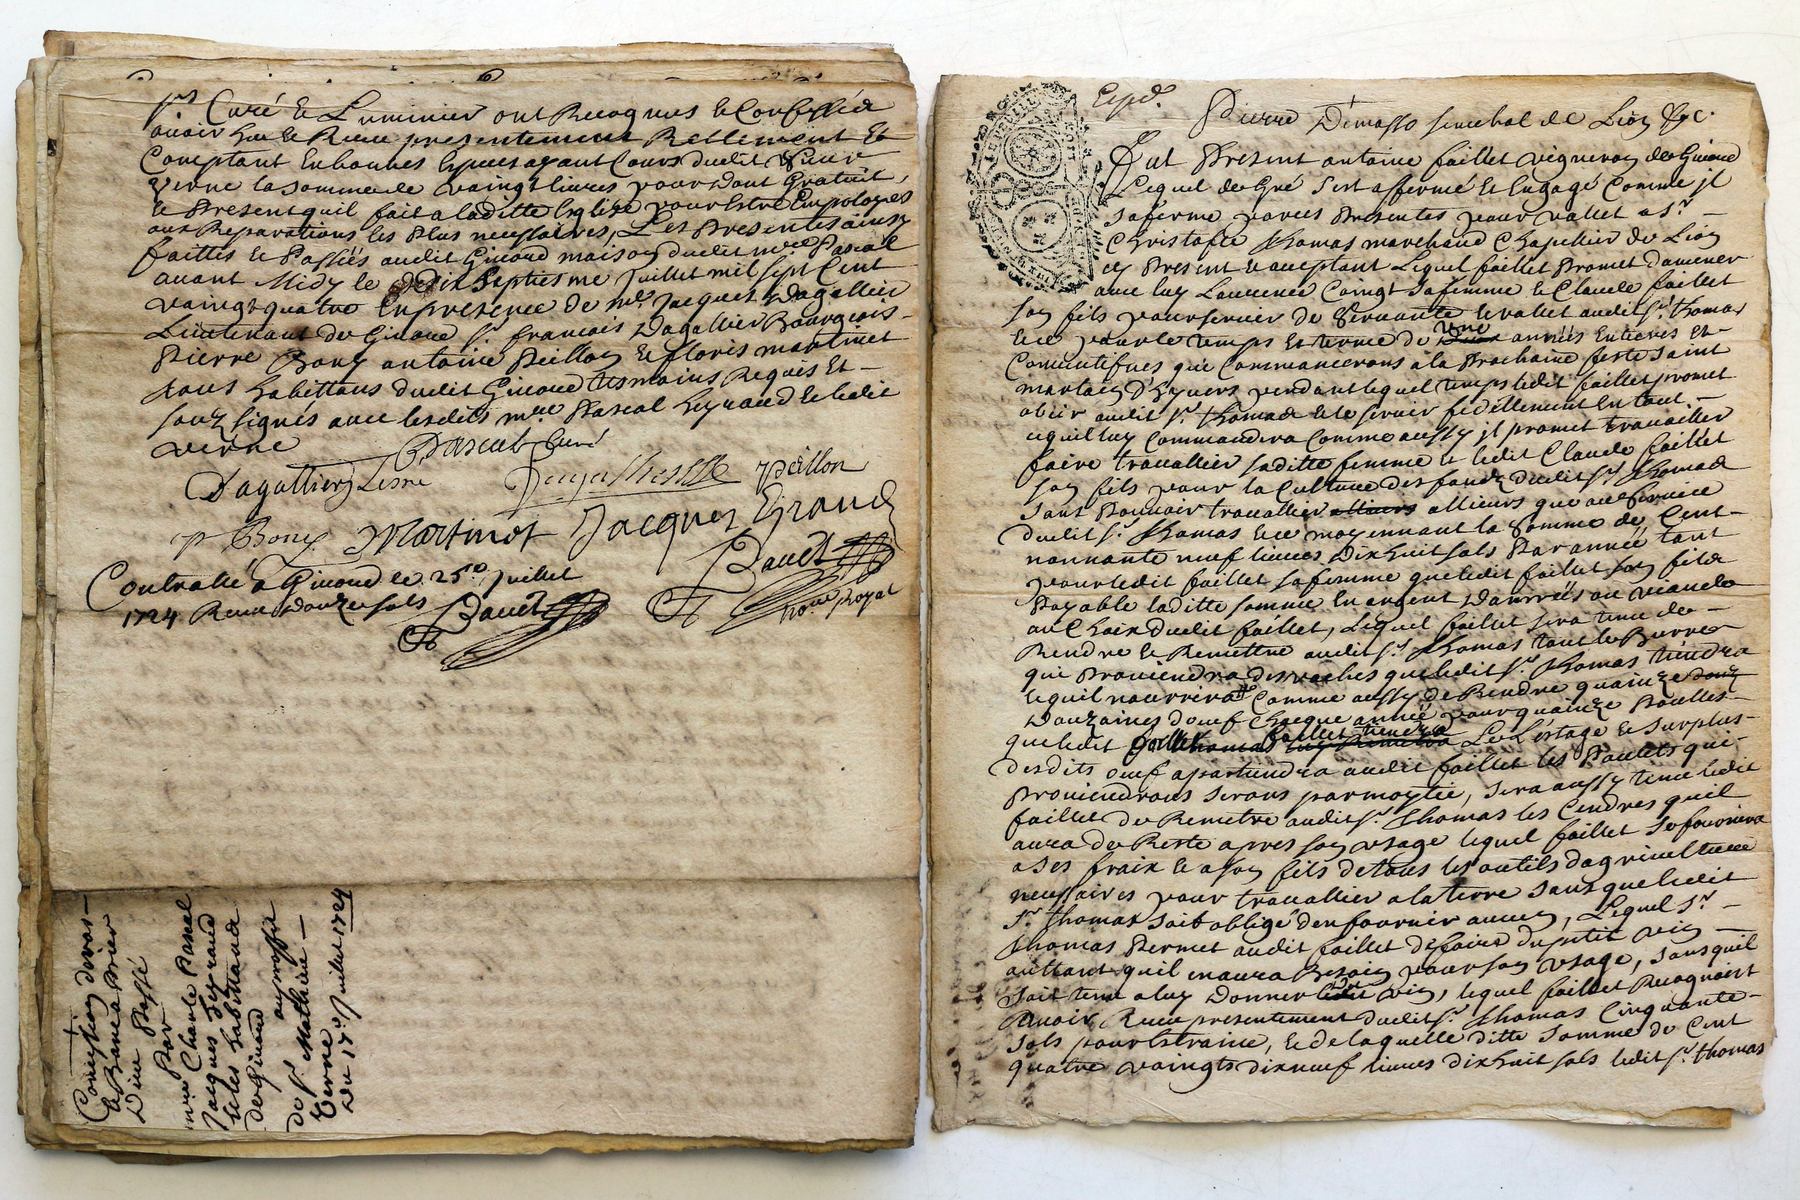 srs Curé et Luminier ont Recognus et Confessés
avoir Heu et Receu presentement Rellement Et
Comptant En bonnes Especes ayant Cours dudit Sieur
Verne la somme de vaingt livres pour dont Gratuit,
le Present quil fait a laditte Eglize pour Estre Emploiyés
aux Reparations les Plus necessaires, Les Presentes ainsy
faittes et Passiés audit Givord maison dudit mre Pascal
avant Midy le dixseptiesme Juillet mil sept Cent
vaingt quatre En presence de Mre Jacques Dagallier
Lieutenant de Givord sr. françois Dagallier Bourgeois
Pierre Bony antoine Peillon et floris martinet
tous habittans dudit Givord tesmoins Requis Et
souz signés avec lesdits mre Pascal heyraud et ledit
verne
Pascal Curé
Dagallier Verne
peillon
p Bony Martinot Jacques Eyraud
Controlle a Givord le 25e Juillet
1724 Receu douze sols
nore Royal
par
mre Charle Pascal
Jacques Eyraud
et les habittans
de Givord
au proffit
de sr. Mathieu
Verne
Du 17e Juillet 1724
Exped.
Pierre Dimasso senechal de Lion &c.
Fut Present antoine faillet vigneron de Givord
Lequel de Gré s'est affermé et Engagé Comme jl
saferme par ces Presentes pour vallet a sr.
Christofle thomas marchand Chapellier de Lion
cy Present et acceptant Lequel faillet Promet damener
avec luy Laurence Coingt sa femme et Claude faillet
son fils pour servir de servante et vallet audit sr. thomas
et ce pour le temps et terme de une années Entieres Et
Consecutifves qui Commancerons a la Prochaine feste saint
martain D'hyvers pendant lequel temps ledit faillet promet
obeir audit sr. thomas et le servir fidellement En tout
ce quil luy Commandera Comme aussy jl promet travailler
faire travallier saditte femme et ledit Claude faillet
son fils pour la Culture des fonds dudit sr. thomas
sans Pouvoir travallier allieurs allieurs que au service
dudit sr. thomas et ce moyennant la somme de Cent
nonnante neuf livres Dixhuit sols Par année tant
pour ledit faillet sa femme que ledit faillet son fils
Payable laditte somme En argent
au Choix dudit faillet, Lequel faillet sera tenu de
Rendre et Remettre audit sr. thomas tout le Burre
qui Proviendra des vaches que ledit sr. thomas tiendra
et quil nourrira Comme aussy de Rendre quainze douz
Douzaines doeuf Chaque année pour quainze Poulles
que ledit faillet tiendra Et L'estage et surplus
desdits oeuf apartiendra audit faillet les Poulets qui
Proviendrons serons par moytié, sera aussy tenu ledit
faillet de Remetre audit sr. thomas les Cendres quil
aura de Reste apres son usage lequel faillet se fournira
a ses fraix et a son fils de tous les outils dagriculture
necessaires pour travallier a la terre sans que ledit
sr. thomas soit obligé den fournir aucun, Lequel sr.
thomas Permet audit faillet de faire du petit vin
aultant quil en aura Besoin pour son usage, sans quil
soit tenu a luy Donner dudit vin, lequel faillet Recognoist
avoir Receu presentement dudit sr. thomas Cinquante
sols pour Estraine, et de laquelle ditte somme de Cent
quatre vaingts dixneuf livres dixhuit sols ledit sr. thomas